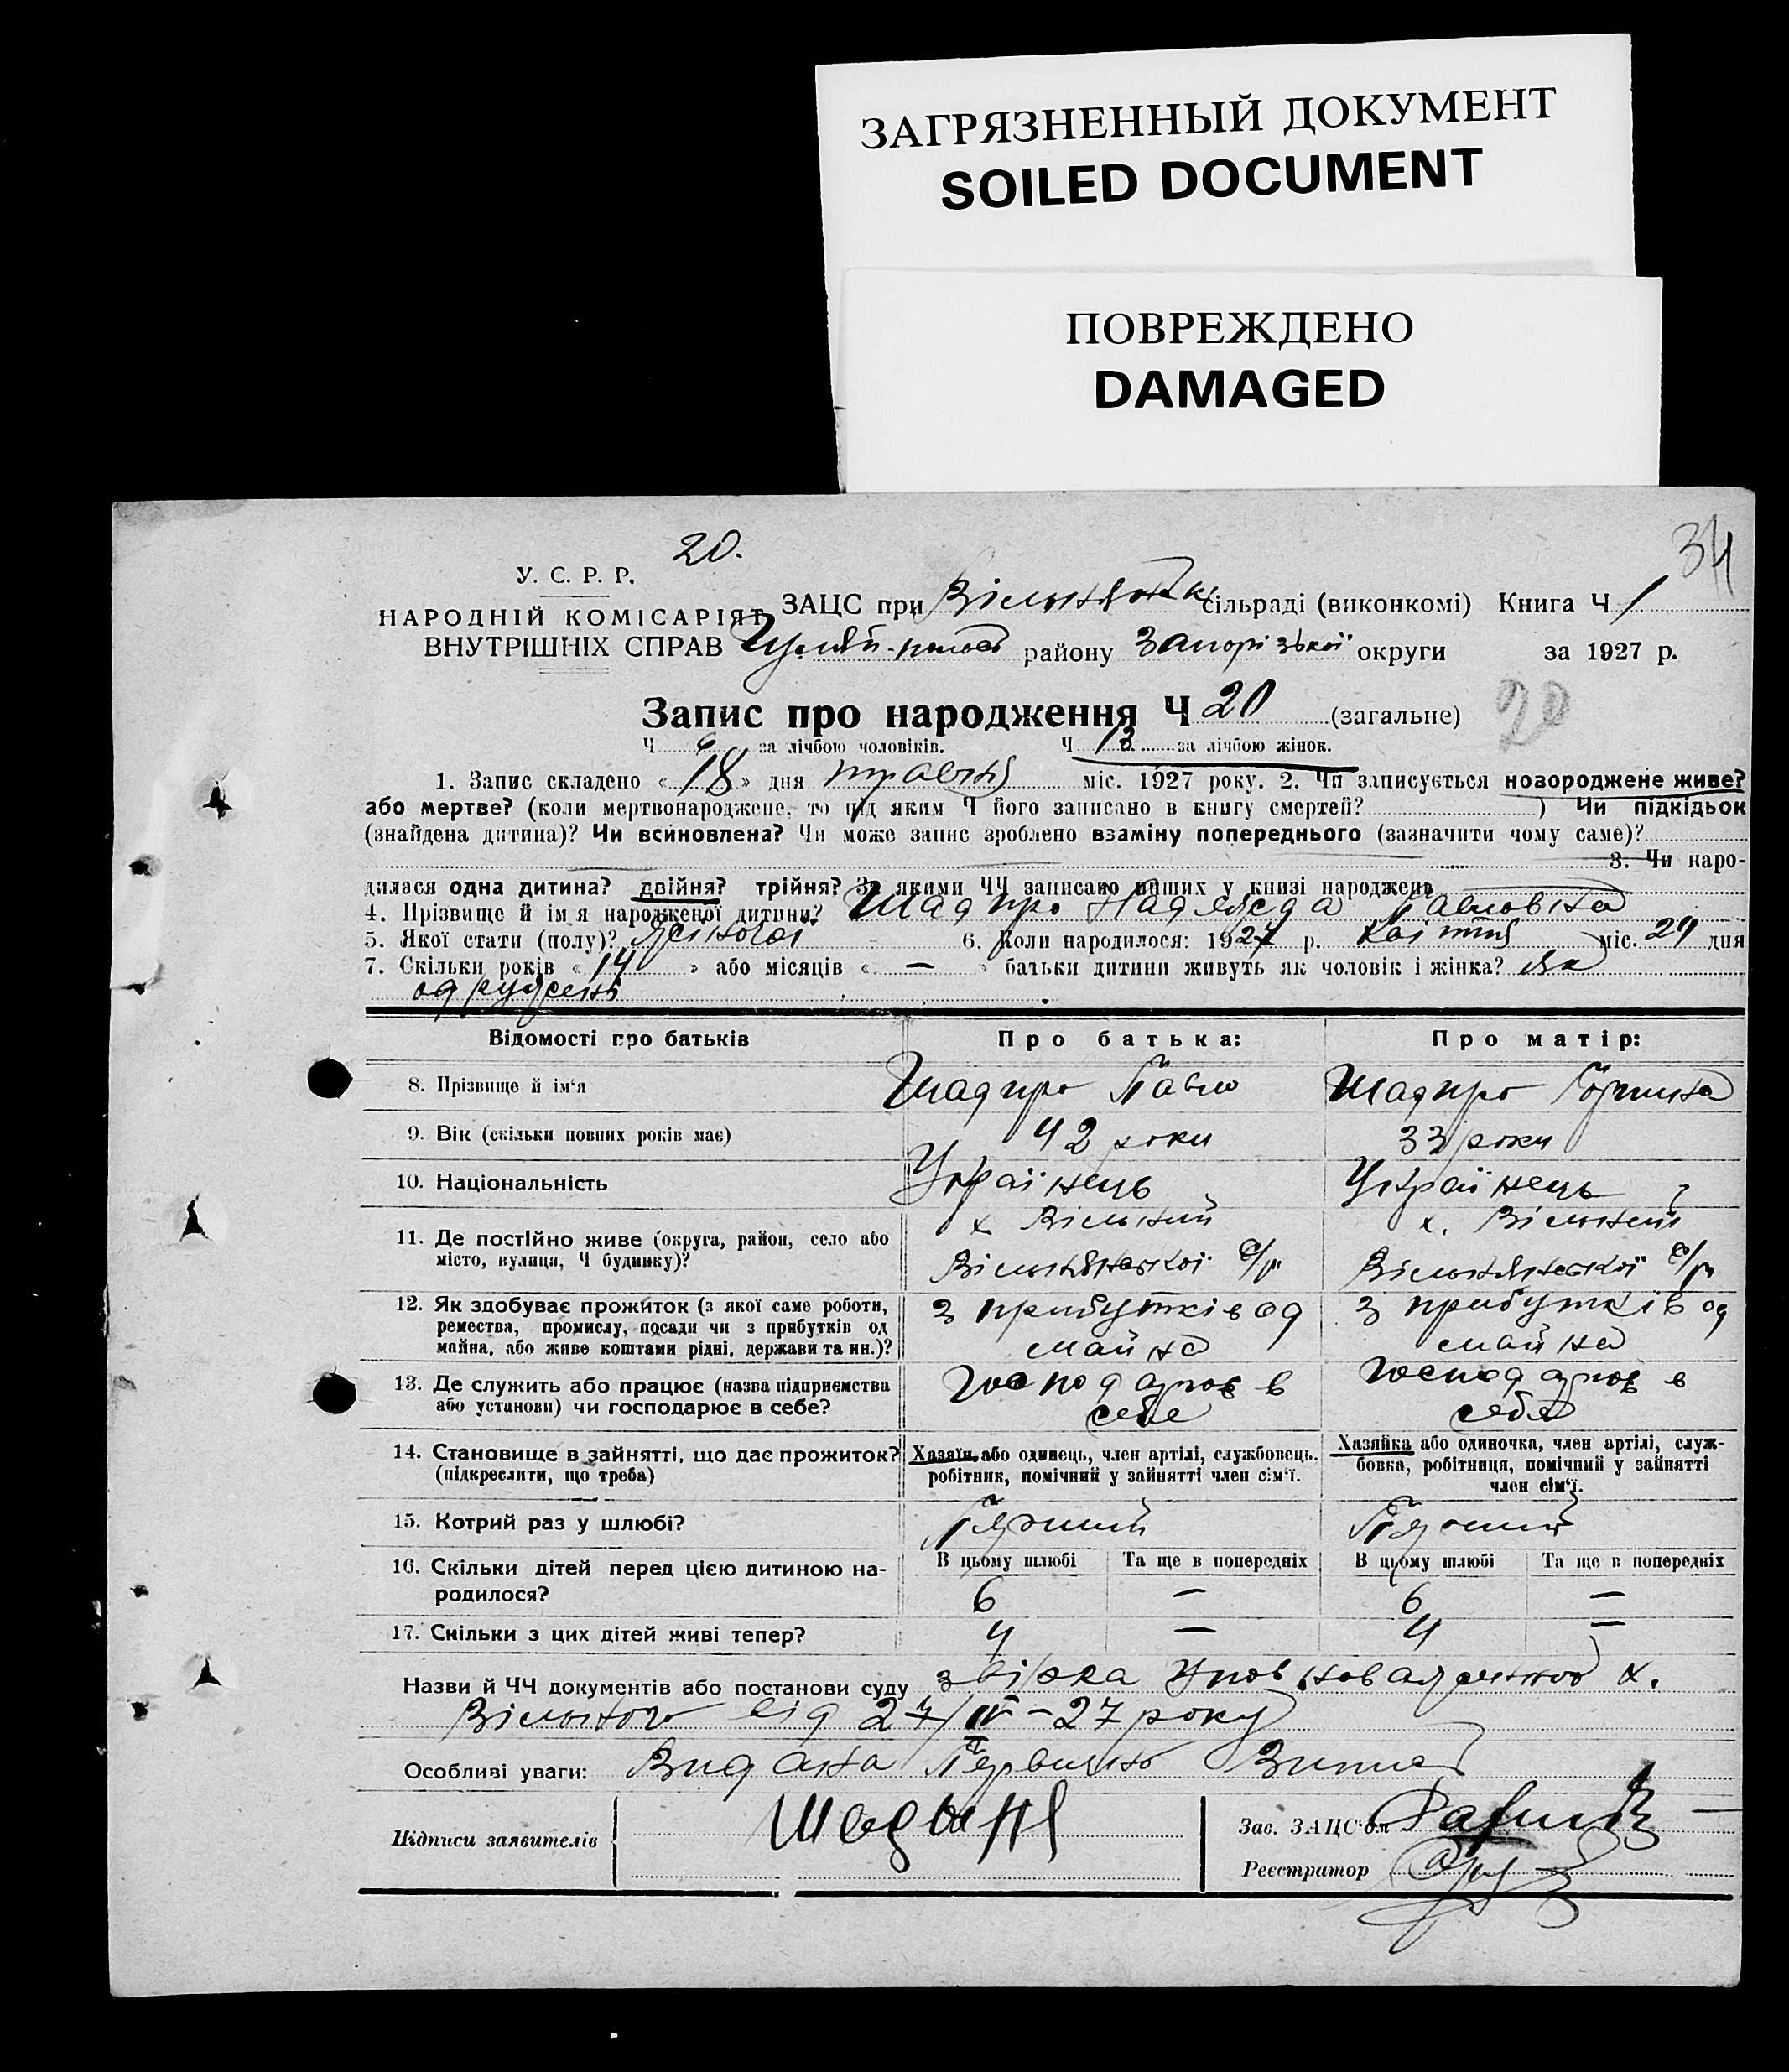 ЗАГРЯЗНЕННЫЙ ДОКУМЕНТ
SOILED DOCUMENT
ПОВРЕЖДЕНО
DAMAGED
20.
34
У. С. Р. Р.
НАРОДНІЙ КОМІСАРІЯТ
ВНУТРІШНІХ СПРАВ
ЗАЦС при сільраді (виконкомі) Книга Ч 1
району Запорізької округи за 1927 р.
Запис про народження Ч 20 (загальне) 20
Ч за лічбою чоловіків. Ч 13 за лічбою жінок.
1. Запис складено « 18 » дня травня міс. 1927 року. 2. Чи записується новороджене живе?
або мертве? (коли мертвонароджене, то під яким Ч його записано в книгу смертей? ) Чи підкідьок
(знайдена дитина)? Чи всиновлена? Чи може запис зроблено взаміну попереднього (зазначити чому саме)?
3. Чи наро-
дилася одна дитина? двійня? трійня? За якими ЧЧ записано инших у книзі народжень
4. Прізвище й ім'я народженої дитини? Шадпро Надежда Павловна
5. Якої стати (полу)? жіночої 6. Коли народилося: 1927 р. квітня міс. 24 дня
7. Скільки років « 14 » або місяців « — » батьки дитини живуть як чоловік і жінка? як
одружені
Відомості про батьків Про батька: Про матір:
8. Прізвище й ім'я Шадпро Павло Шадпро
9. Вік (скільки повних років має) 42 роки 33 роки
10. Національність Українець Українець
11. Де постійно живе (округа, район, село або
місто, вулиця, Ч будинку)?
х. Вільний х. Вільний
Вільнянської с/р Вільнянської с/р
12. Як здобуває прожиток (з якої саме роботи,
ремества, промислу, посади чи з прибутків од
майна, або живе коштами рідні, держави та ин.)?
з прибутків од майна з прибутків од майна
13. Де служить або працює (назва підприємства
або установи) чи господарює в себе?
Господарює в себе господарює в себе
14. Становище в зайнятті, що дає прожиток?
(підкреслити, що треба)
Хазяїн або одинець, член артілі, службовець,
робітник, помічний у зайнятті член сім'ї.
Хазяйка або одиночка, член артілі, служ-
бовка, робітниця, помічний у зайнятті
член сім'ї.
15. Котрий раз у шлюбі? Перший Перший
16. Скільки дітей перед цією дитиною на-
родилося?
В цьому шлюбі Та ще в попередніх В цьому шлюбі Та ще в попередніх
6 — 6 —
17. Скільки з цих дітей живі тепер? 4 — 4 —
Назви й ЧЧ документів або постанови суду х.
Вільного від 27/IV-27 року
Особливі уваги: Видана
Підписи заявителів
Зав. ЗАЦС'ом
Реєстратор